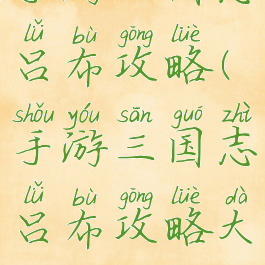 lǚ bù gōng lüè
吕布攻略(
shǒu yóu sān guó zhì
手游三国志
lǚ bù gōng lüè dà
吕布攻略大